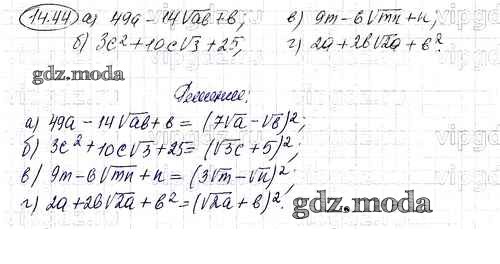 14.44 а) 49a - 14√ab + b; в) 9m - 6√mn + n;
б) 3c² + 10c√3 + 25; г) 2a + 2b√2a + b².
gdz.moda
Решение:
а) 49a - 14√ab + b = (7√a - √b)²;
б) 3c² + 10c√3 + 25 = (√3c + 5)²;
в) 9m - 6√mn + n = (3√m - √n)²;
г) 2a + 2b√2a + b² = (√2a + b)².
gdz.moda